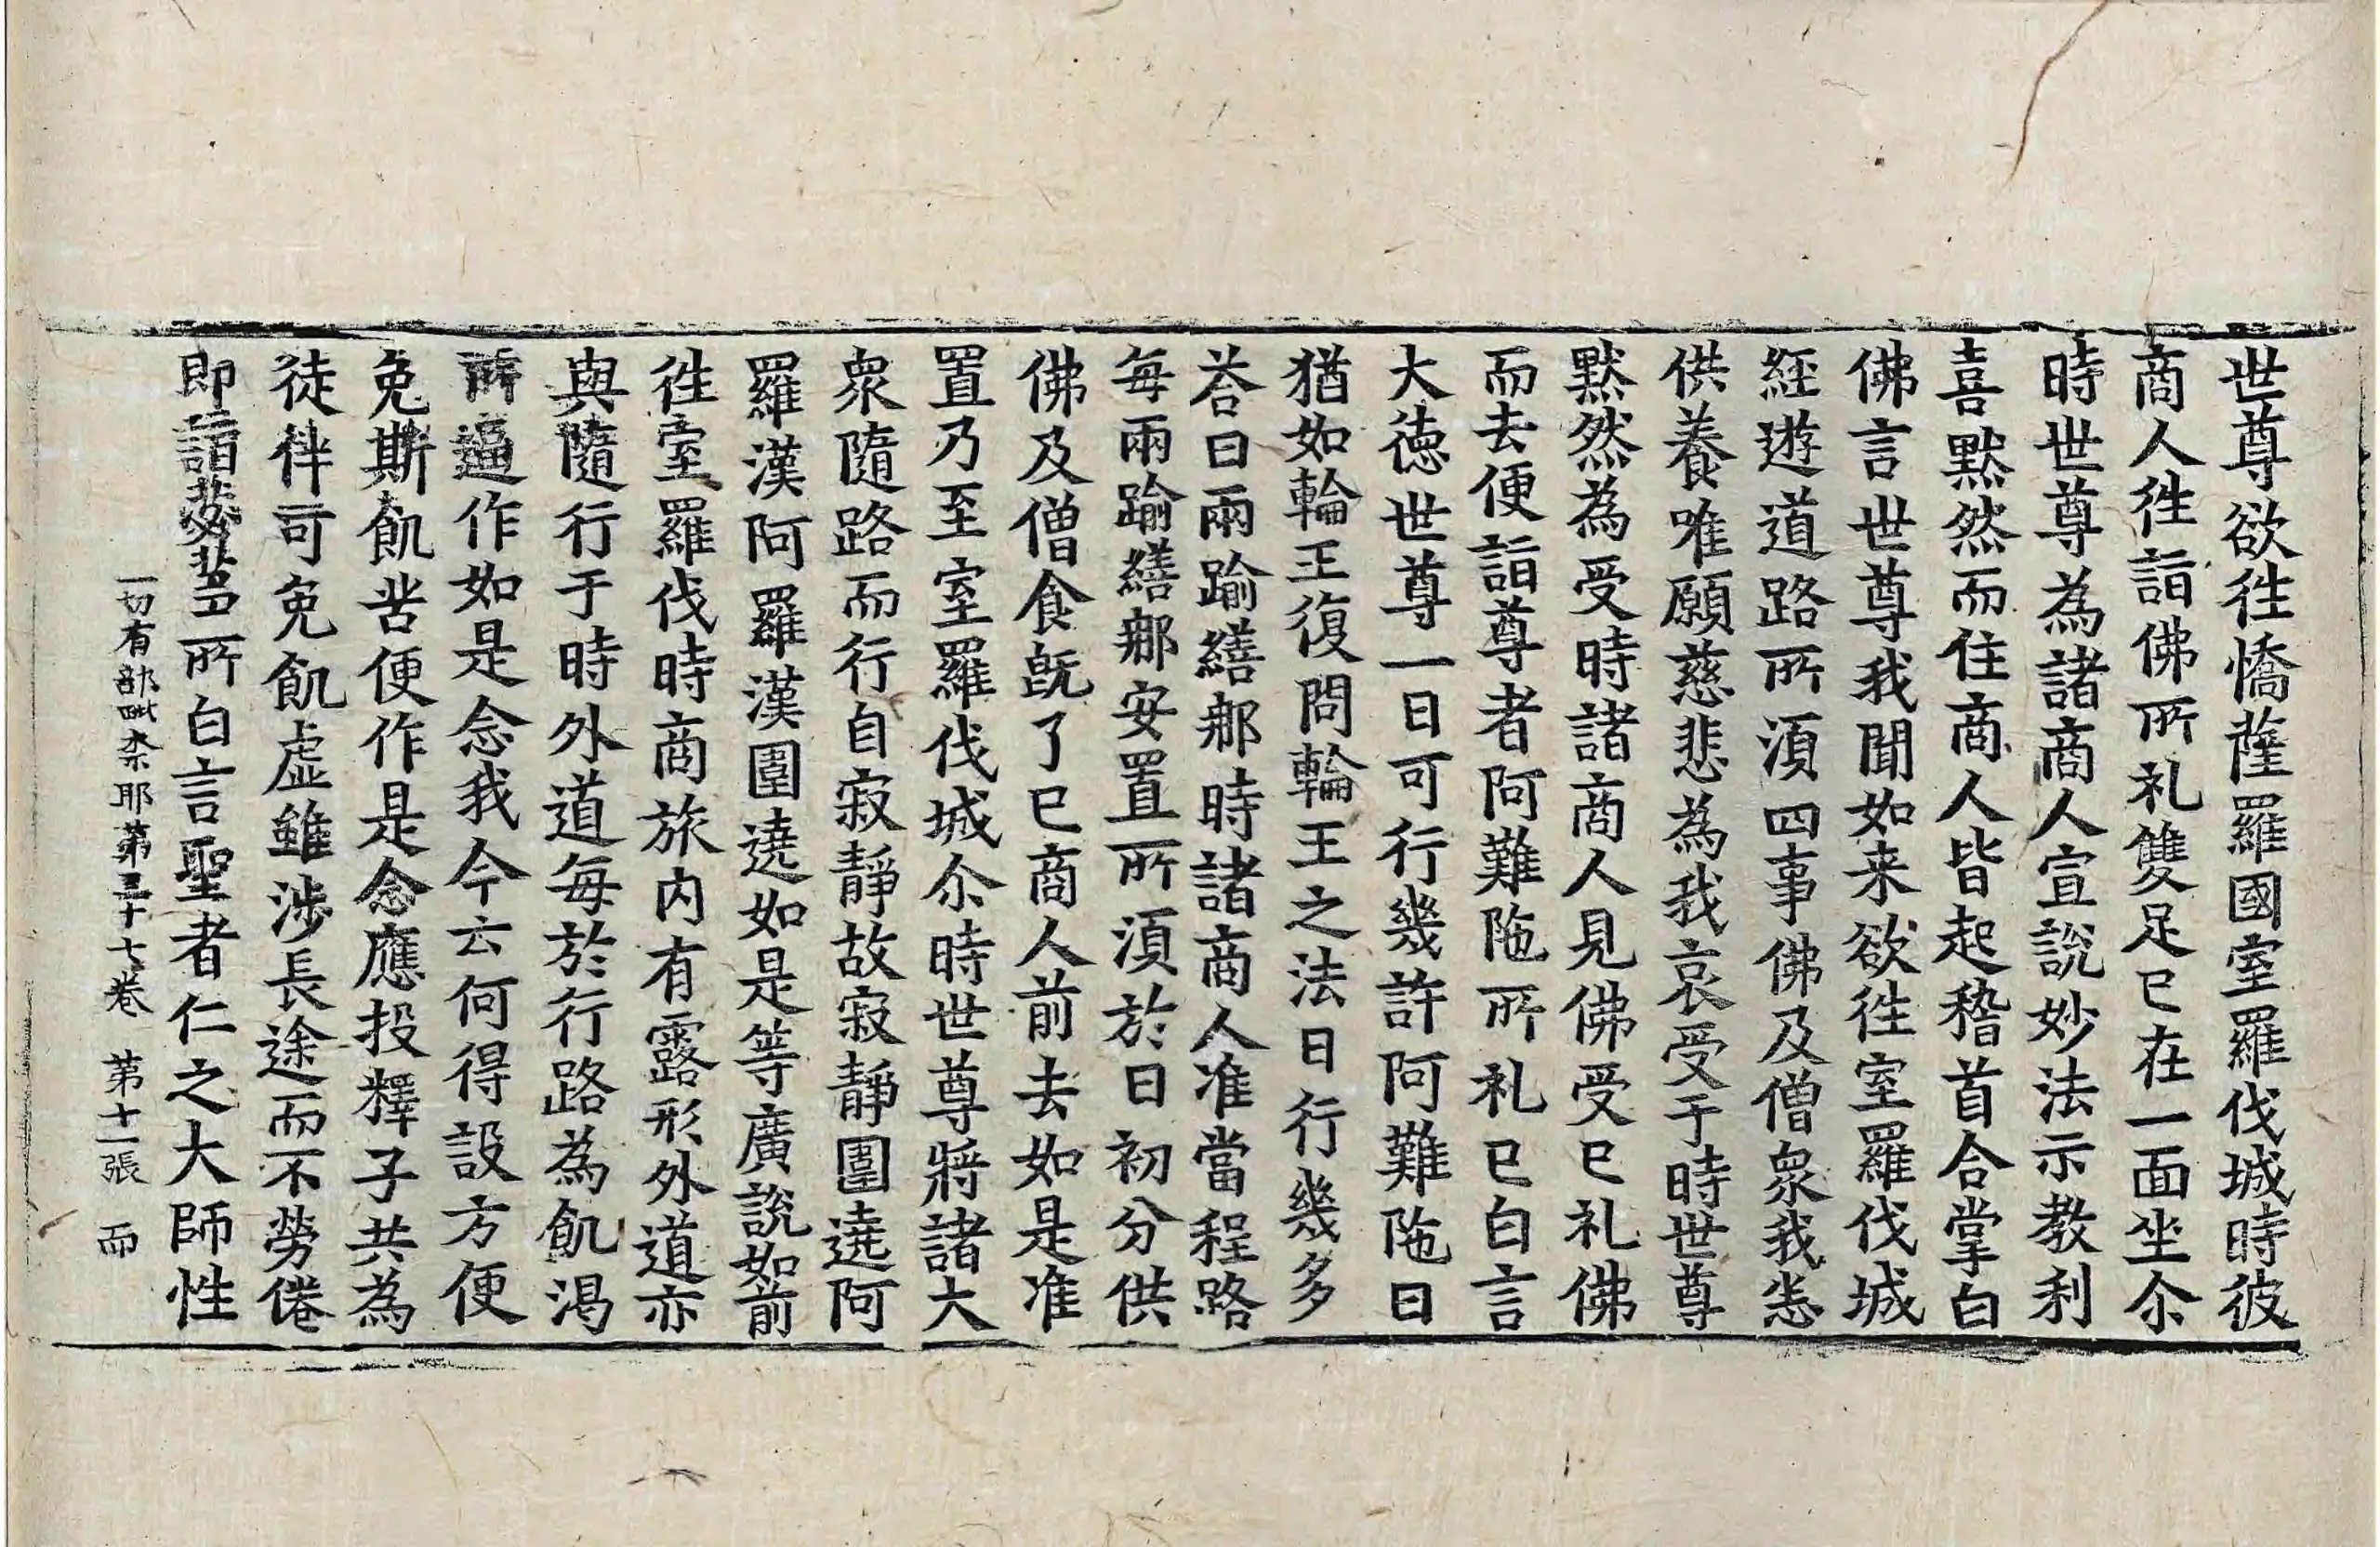 世尊欲徃憍薩羅國室羅伐城時彼
商人徃詣佛所礼雙足已在一面坐尒
時世尊為諸商人宣說妙法示教利
喜黙然而住商人皆起稽首合掌白
佛言世尊我聞如来欲徃室羅伐城
經遊道路所湏四事佛及僧衆我恙
供養唯願慈悲為我哀受于時世尊
黙然為受時諸商人見佛受已礼佛
而去便詣尊者阿難陁所礼已白言
大德世尊一日可行幾許阿難陁曰
猶如輪王復問輪王之法日行幾多
荅曰兩踰繕那時諸商人准當程路
每兩踰繕那安置所湏於日初分供
佛及僧食旣了已商人前去如是准
置乃至室羅伐城尒時世尊將諸大
衆隨路而行自寂靜故寂靜圍遶阿
羅漢阿羅漢圍遶如是等廣說如前
徃室羅伐時商旅内有露形外道亦
與隨行于時外道每於行路為飢渇
所逼作如是念我今云何得設方便
免斯飢苦便作是念應投釋子共為
徒伴可免飢虚雖涉長途而不勞倦
即詣苾芻所白言聖者仁之大師性
一切有部毗柰耶第三十七卷　第十一張　而